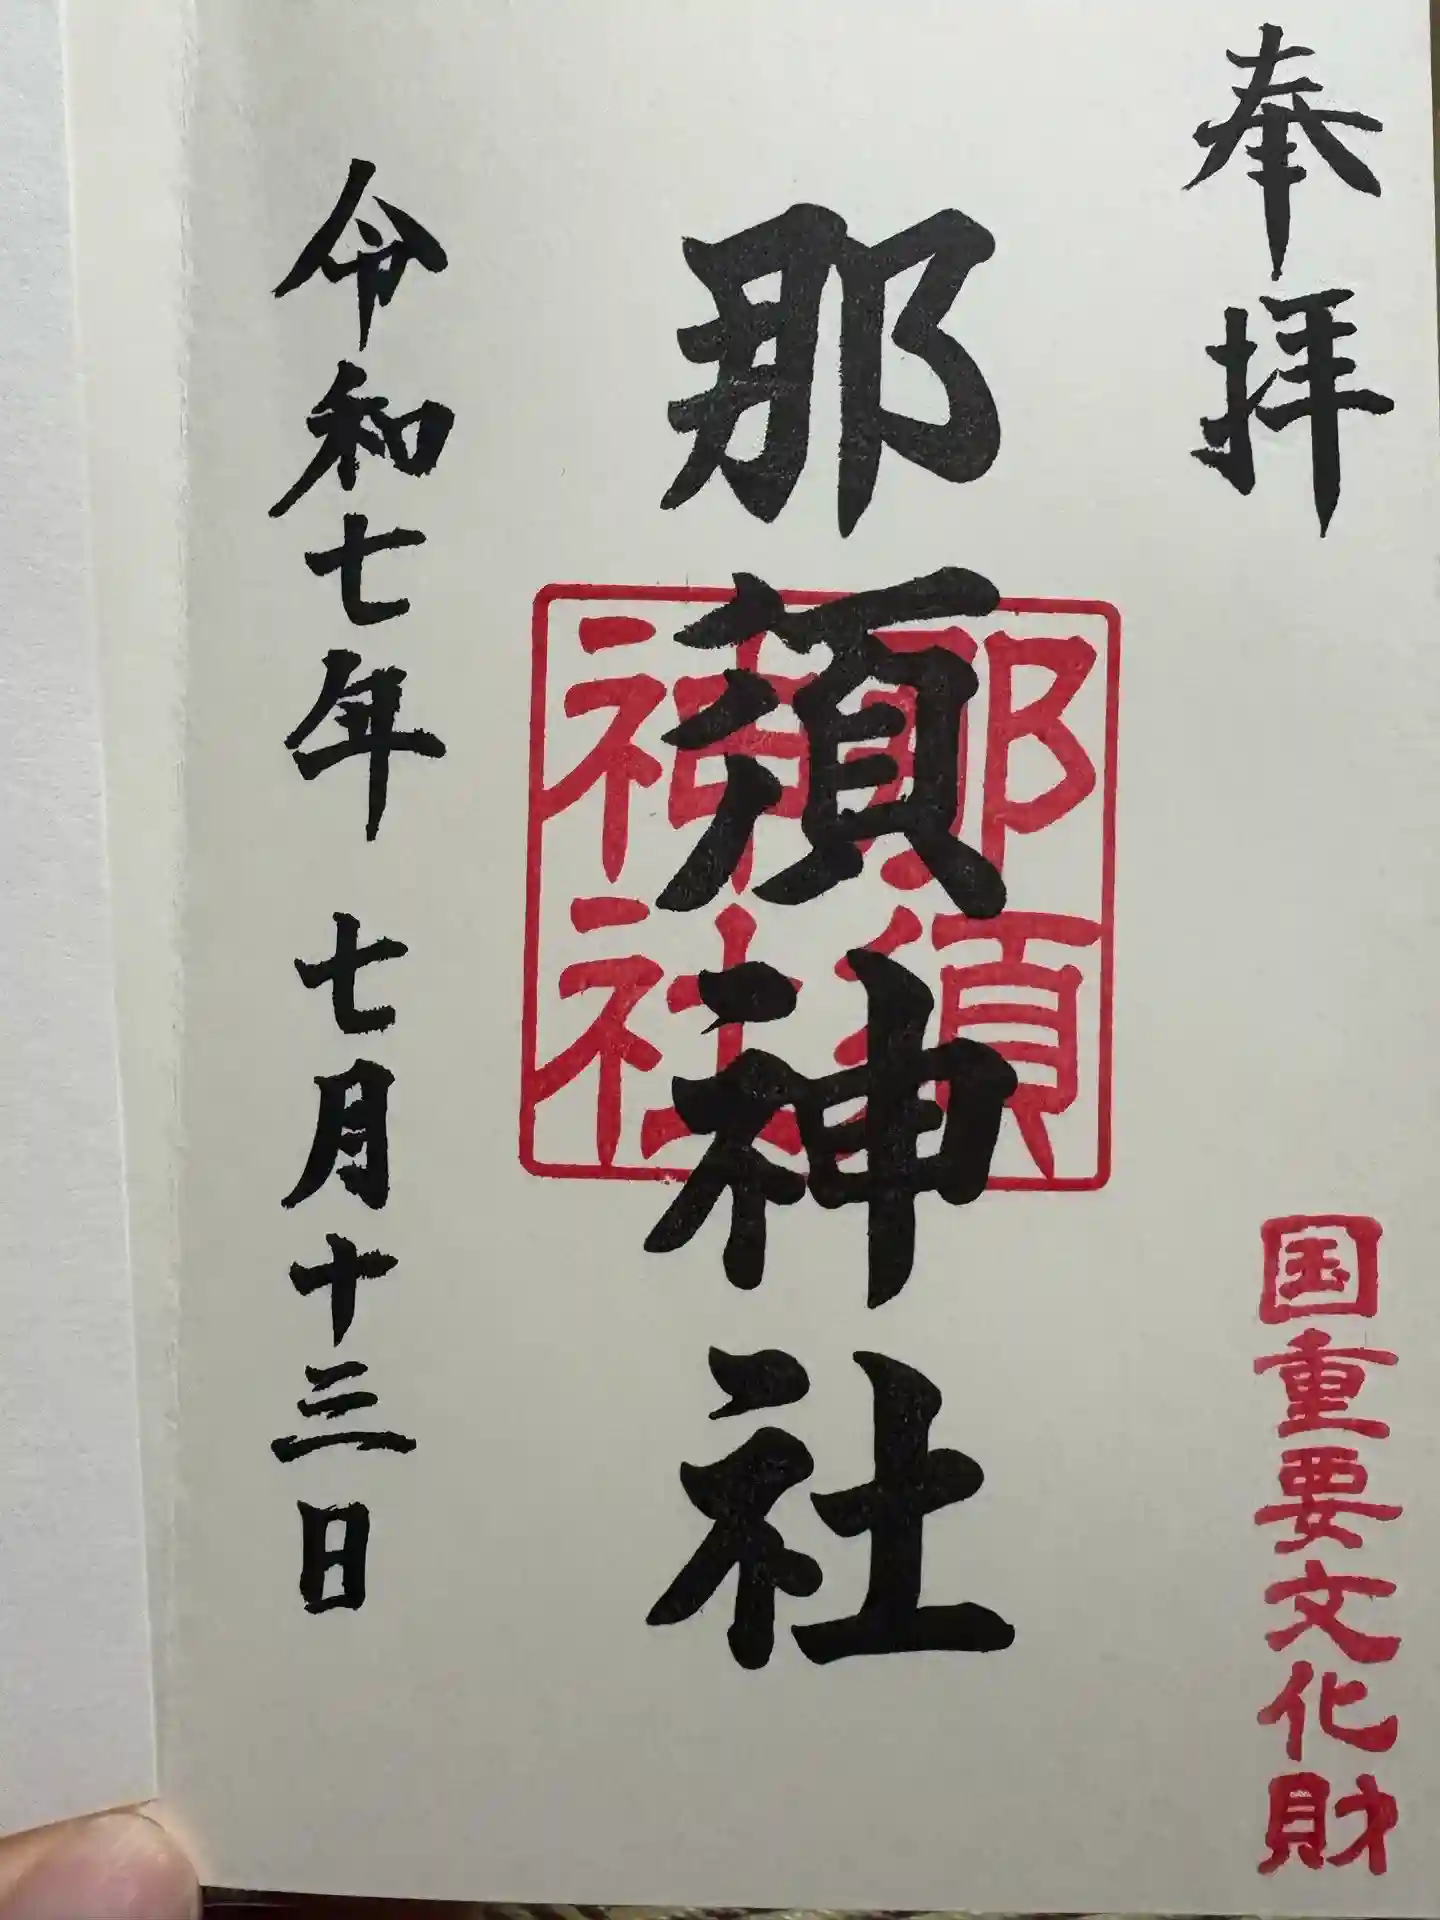 奉拝
国重要文化財
那須神社
那須神社
令和七年 七月十三日